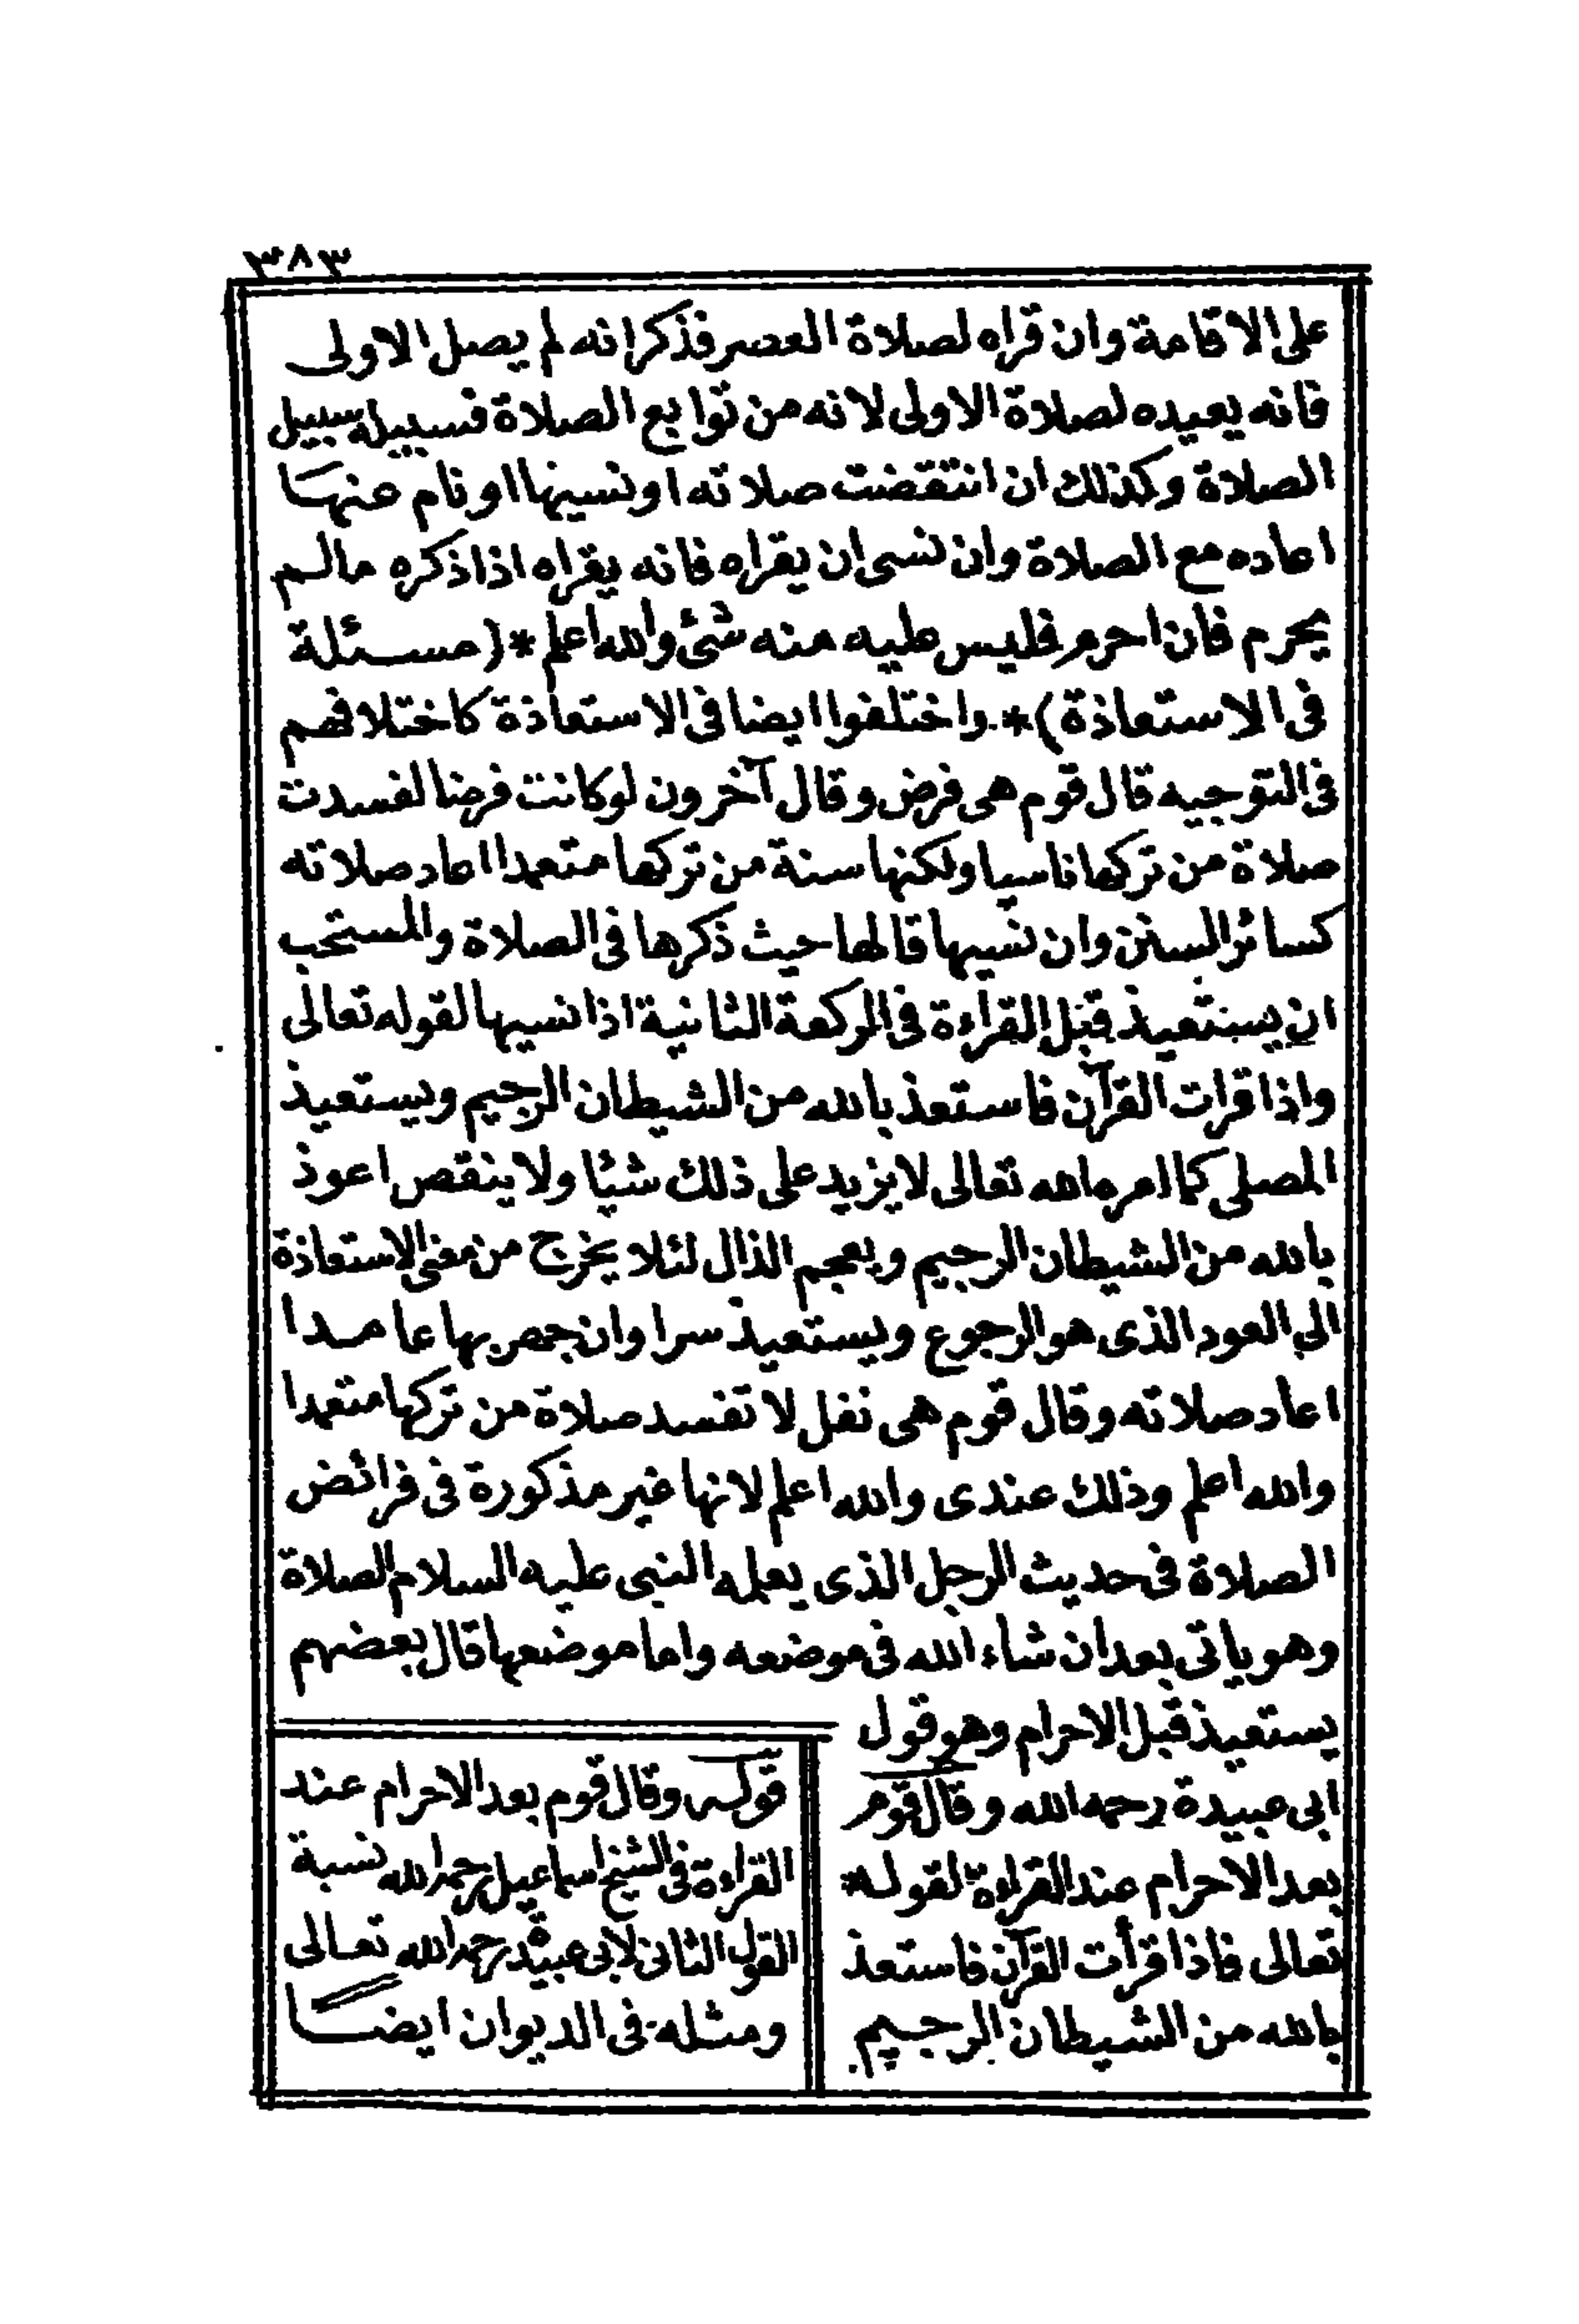 ٣٨٣
على الاقامة وان قراه لصلاة العصر فذكر انه لم يصل الاولى
فانه يعيده لصلاة الاولى لانه من توابع الصلاة فسبيله سبيل
الصلاة وكذلك ان انتقضت صلاته او نسيها او نام عنها
اعاده مع الصلاة وان نسى ان يقراه فانه يقراه اذا ذكره مالم
يحرم فان احرم فليس عليه منه شئ والله اعلم * (مسئلة
فى الاستعاذة) * واختلفوا ايضا فى الاستعاذة كاختلافهم
فى التوجيه قال قوم هى فرض وقال آخرون لوكانت فرضا لفسدت
صلاة من تركها ناسيا ولكنها سنة من تركها متعمدا اعاد صلاته
كسائر السنن وان نسيها قالها حيث ذكرها فى الصلاة والمستحب
ان يستعيذ قبل القراءة فى الركعة الثانية اذا نسيها لقوله تعالى
واذا قرات القرآن فاستعذ بالله من الشيطان الرجيم ويستعيذ
المصلى كما امره الله تعالى لا يزيد على ذلك شيئا ولا ينقص اعوذ
بالله من الشيطان الرجيم ويعجم الذال لئلا يخرج من معنى الاستعاذة
الى العود الذى هو الرجوع ويستعيذ سرا وان جهر بها عامدا
اعاد صلاته وقال قوم هى نفل لا تفسد صلاة من تركها متعمدا
والله اعلم وذلك عندى والله اعلم لانها غير مذكورة فى فرائض
الصلاة فى حديث الرجل الذى يعلمه النبى عليه السلام الصلاة
وهو ياتى بعد ان شاء الله فى موضعه واما موضعها قال بعضهم
يستعيذ قبل الاحرام وهو قول
ابى عبيدة رحمه الله وقال قوم
بعد الاحرام عند القراءة لقوله *
تعالى فاذا قرأت القرآن فاستعذ
بالله من الشيطان الرجيم
قوله وقال قوم بعد الاحرام عند
القراءة فى الشيخ اسماعيل رحمه الله نسبة
القول الثانى لابى عبيدة رحمه الله تعالى
ومثله فى الديوان ايضا